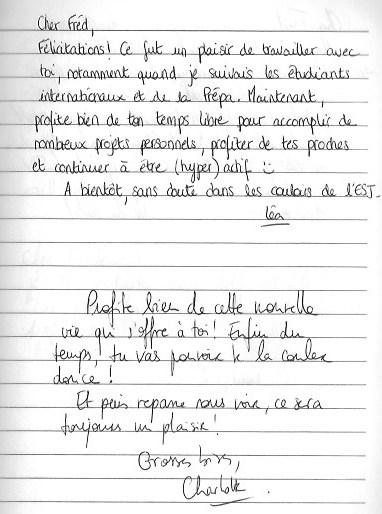 Cher Fréd,
Félicitations! Ce fut un plaisir de travailler avec
toi, notamment quand je suivais les étudiants
internationaux et de la Prépa. Maintenant,
profite bien de ton temps libre pour accomplir de
nombreux projets personnels, profiter de tes proches
et continuer à être (hyper) actif :)
A bientôt, sans doute dans les couloirs de l'EST.
Léa
Profite bien de cette nouvelle
vie qui s'offre à toi! Enfin du
temps, tu vas pouvoir te la couler
douce!
Et puis repasse nous voir, ce sera
toujours un plaisir!
Grosses bises,
Charlotte.